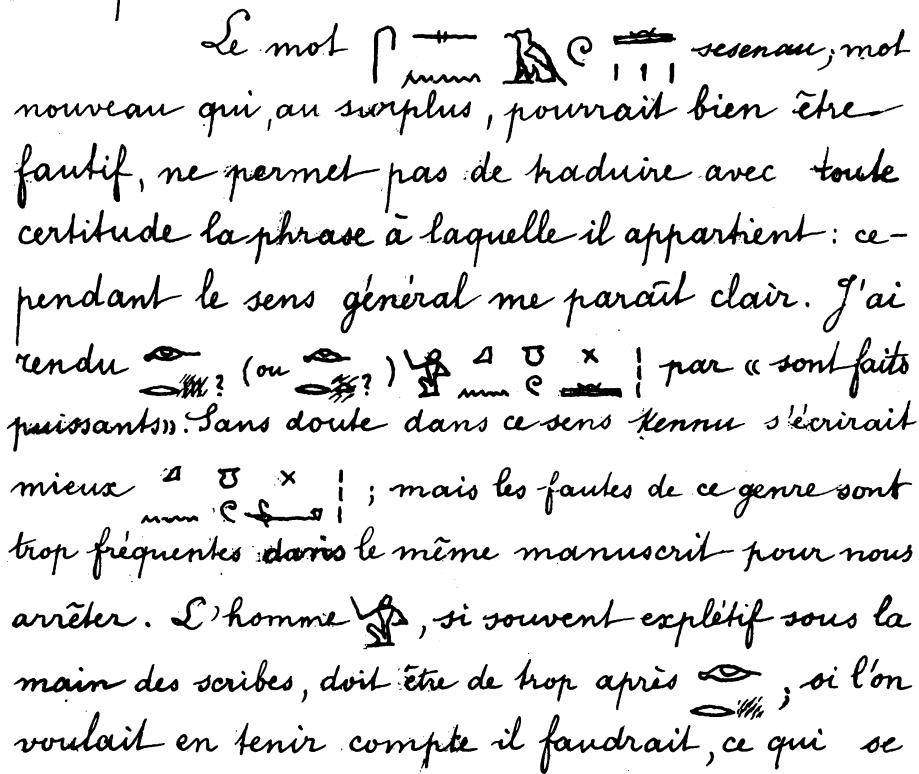 Le mot 𓋴𓊃𓈖𓅓𓏲𓏛𓏥 sesenau, mot
nouveau qui, au surplus, pourrait bien être
fautif, ne permet pas de traduire avec toute
certitude la phrase à laquelle il appartient : ce-
pendant le sens général me paraît clair. J'ai
rendu ? (ou ?) par « sont faits
puissants». Sans doute dans ce sens kennu s'écrirait
mieux ; mais les fautes de ce genre sont
trop fréquentes dans le même manuscrit pour nous
arrêter. L'homme , si souvent explétif sous la
main des scribes, doit être de trop après ; si l'on
voulait en tenir compte il faudrait, ce qui se